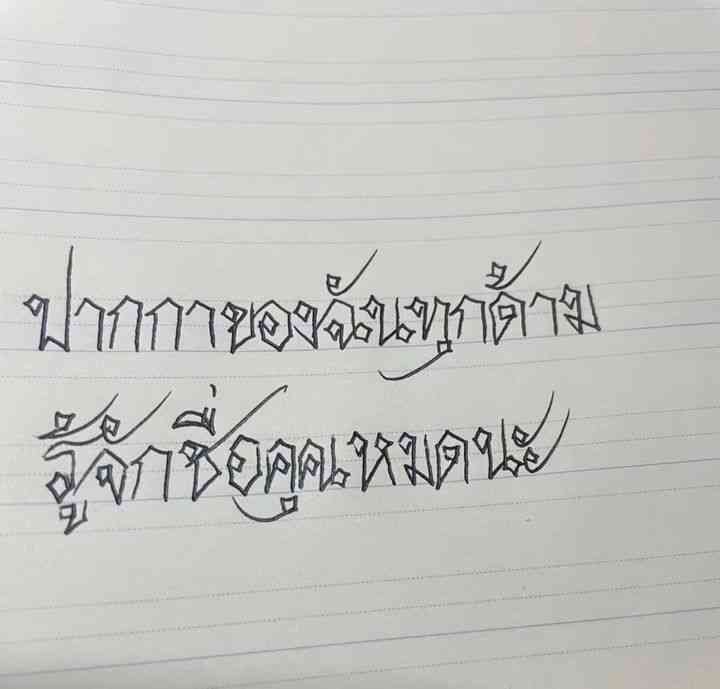 ปากกาของฉันทุกด้าม
รู้จักชื่อคุณหมดนะ